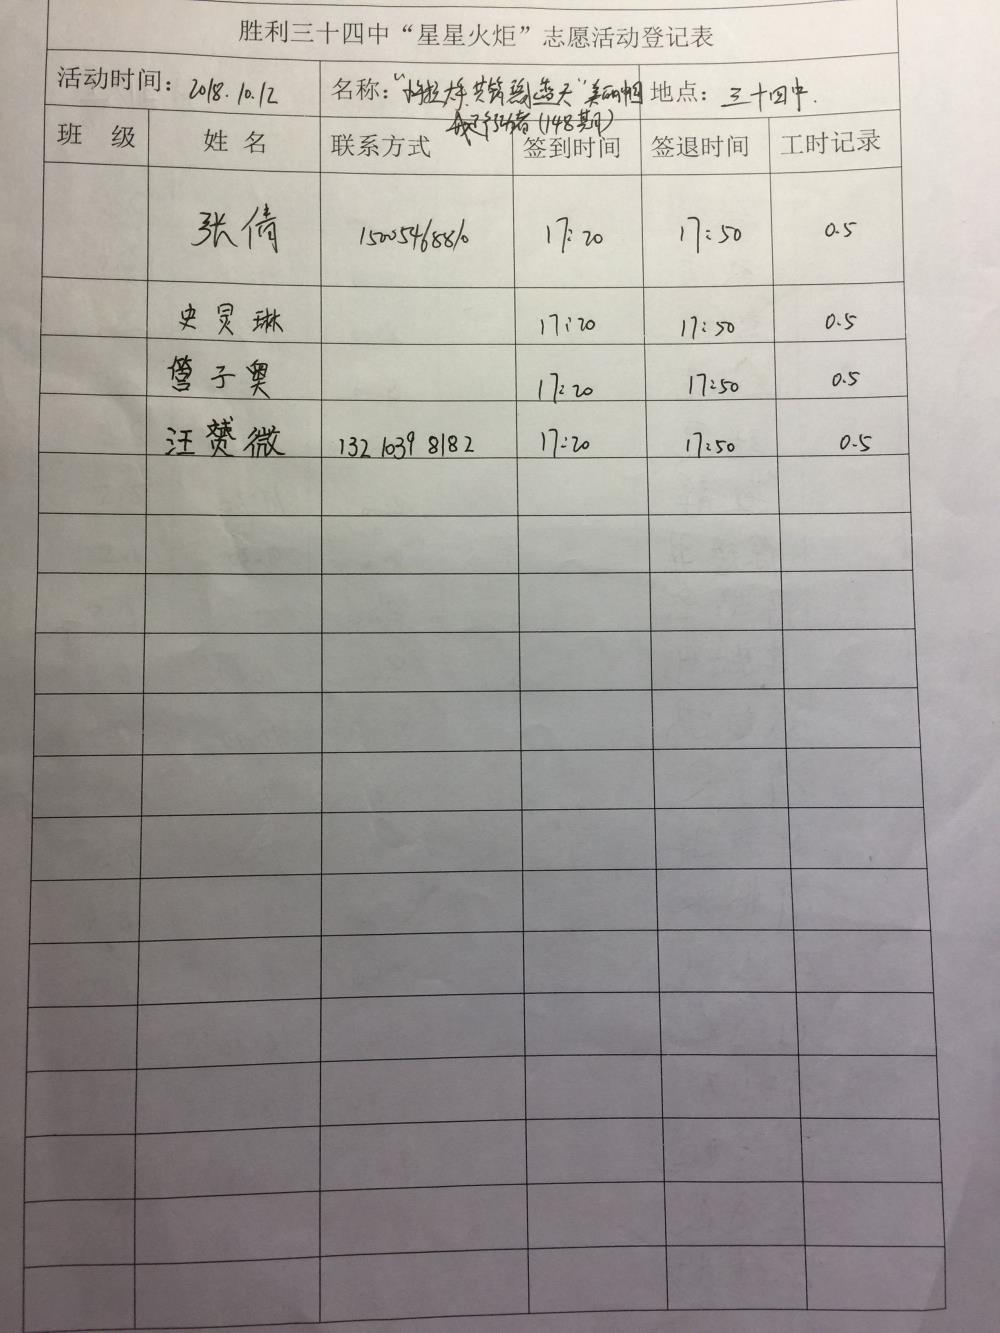 胜利三十四中“星星火炬”志愿活动登记表
活动时间：2018.10.12 名称：“ 大手 共管 蓝天”美丽中国 地点：三十四中.
我是行动者（148期）
班 级 姓 名 联系方式 签到时间 签退时间 工时记录
张倩 15005468810 17:20 17:50 0.5
史灵琳 17:20 17:50 0.5
管子奥 17:20 17:50 0.5
汪赟微 132 1039 8182 17:20 17:50 0.5